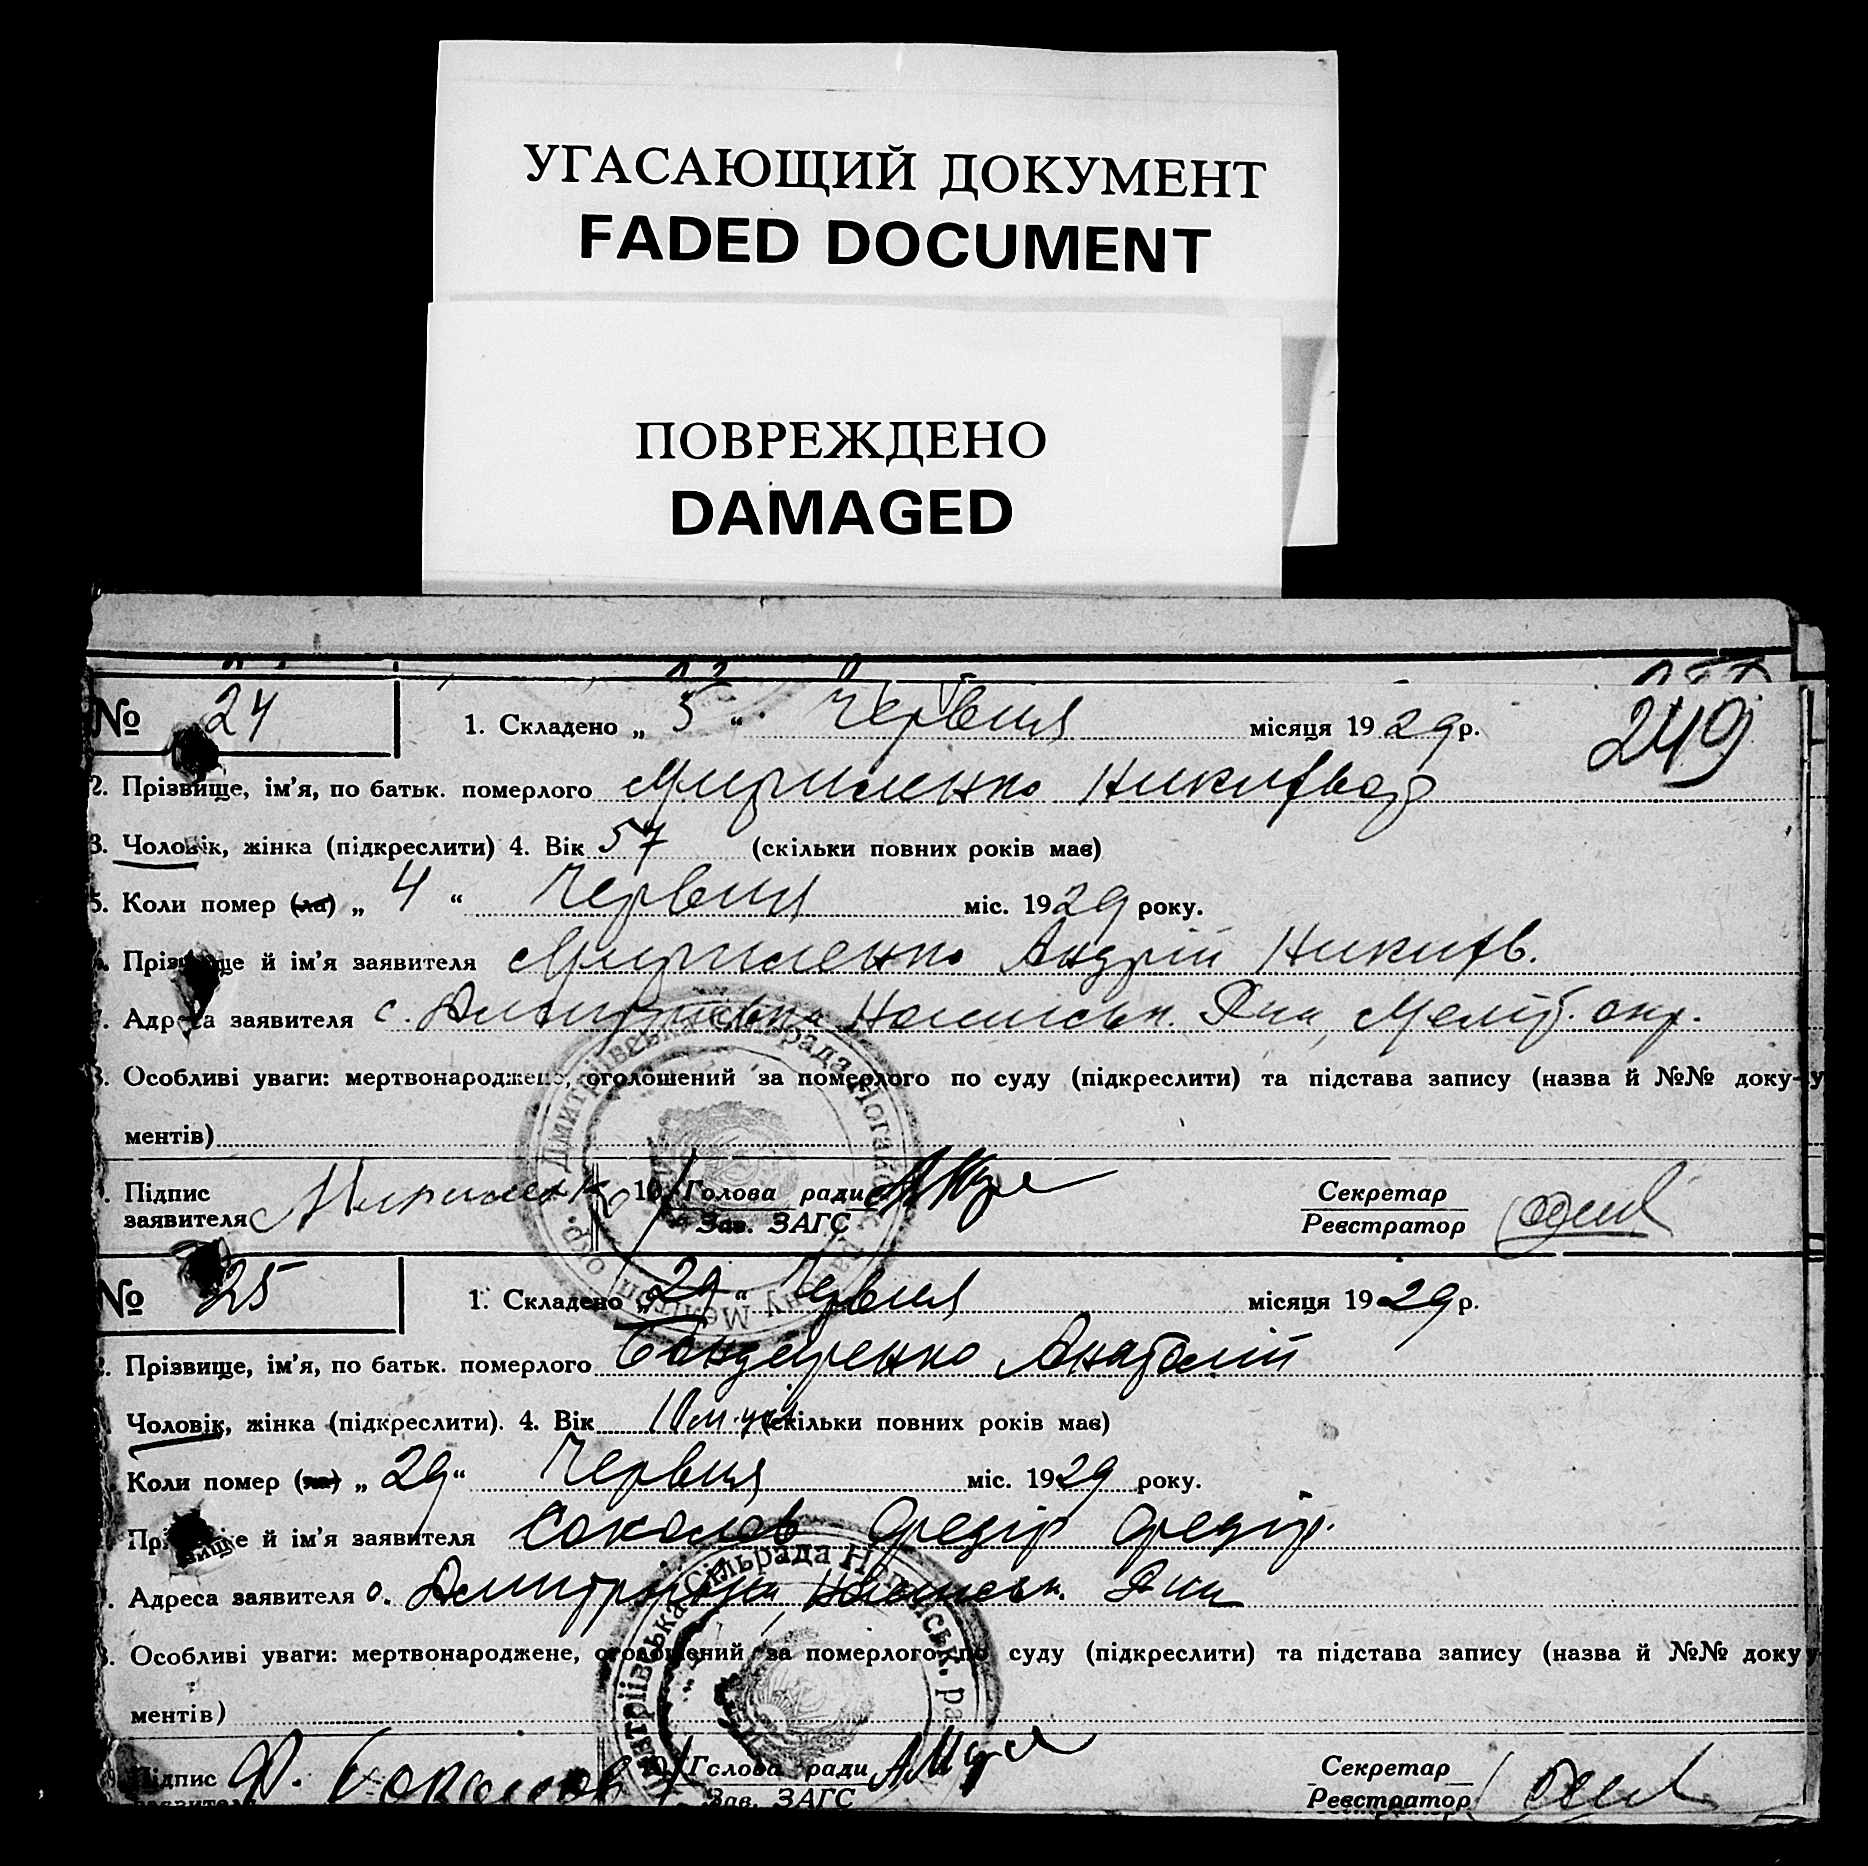 УГАСАЮЩИЙ ДОКУМЕНТ
FADED DOCUMENT
ПОВРЕЖДЕНО
DAMAGED
№ 24 1. Складено „ 5 “ Червня місяця 1929 р. 249
2. Прізвище, ім'я, по батьк. померлого Никифор
3. Чоловік, жінка (підкреслити) 4. Вік 57 (скільки повних років має)
5. Коли помер (ла) „ 4 “ Червня міс. 1929 року.
Прізвище й ім'я заявителя Андрій Никиф.
Адреса заявителя с. Дмитрівка Меліт. окр.
Особливі уваги: мертвонароджено, оголошений за померлого по суду (підкреслити) та підстава запису (назва й №№ доку-
ментів)
Підпис заявителя 10. Голова ради Зав. ЗАГС Секретар Реєстратор
№ 25 1. Складено „ 29 “ Червня місяця 1929 р.
Прізвище, ім'я, по батьк. померлого Бондаренко Анатолій
Чоловік, жінка (підкреслити). 4. Вік 10 (скільки повних років має)
Коли помер (ла) „ 29 “ Червня міс. 1929 року.
Прізвище й ім'я заявителя Соколов Федір Федір.
Адреса заявителя с. Дмитрівка
Особливі уваги: мертвонароджене, оголошений за померлого по суду (підкреслити) та підстава запису (назва й №№ доку
ментів)
Підпис заявителя Ф. Соколов Голова ради Зав. ЗАГС Секретар Реєстратор